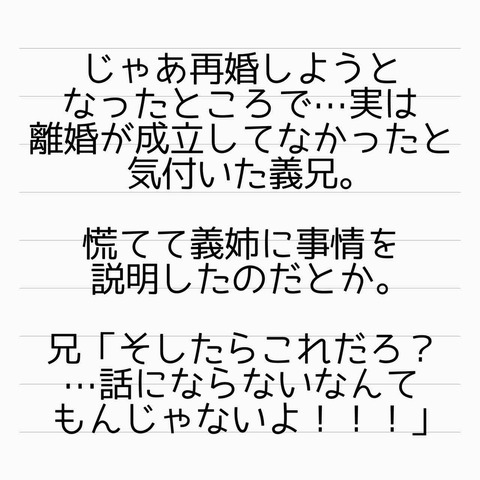 じゃあ再婚しようと
なったところで…実は
離婚が成立してなかったと
気付いた義兄。
慌てて義姉に事情を
説明したのだとか。
兄「そしたらこれだろ？
…話にならないなんて
もんじゃないよ！！！」